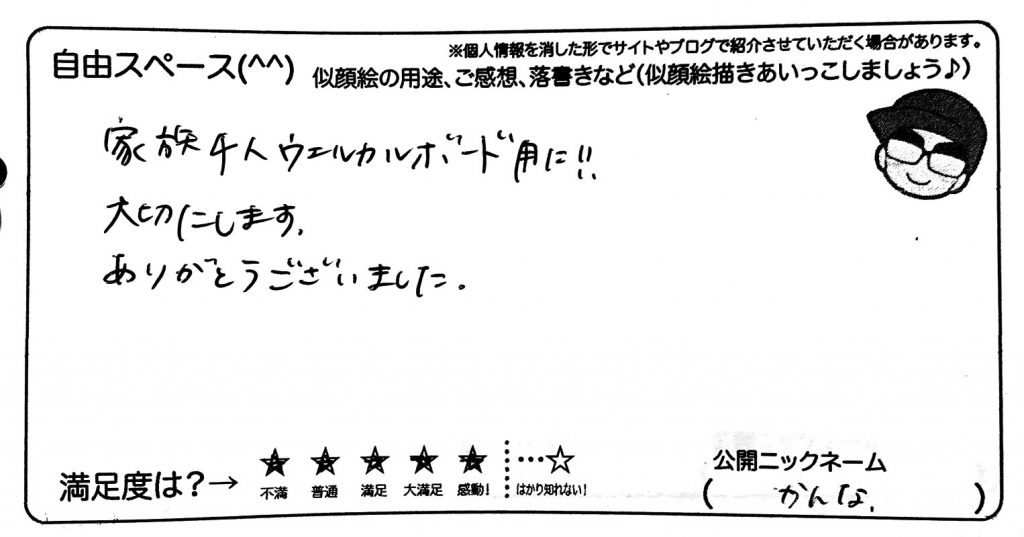 ※個人情報を消した形でサイトやブログで紹介させていただく場合があります。
自由スペース(^^) 似顔絵の用途、ご感想、落書きなど(似顔絵描きあいっこしましょう♪)
家族4人ウエルカルボード用に!!
大切にします。
ありがとうございました。
満足度は?→ ★ ★ ★ ★ ★ …☆
不満 普通 満足 大満足 感動! はかり知れない!
公開ニックネーム
(かんな.)